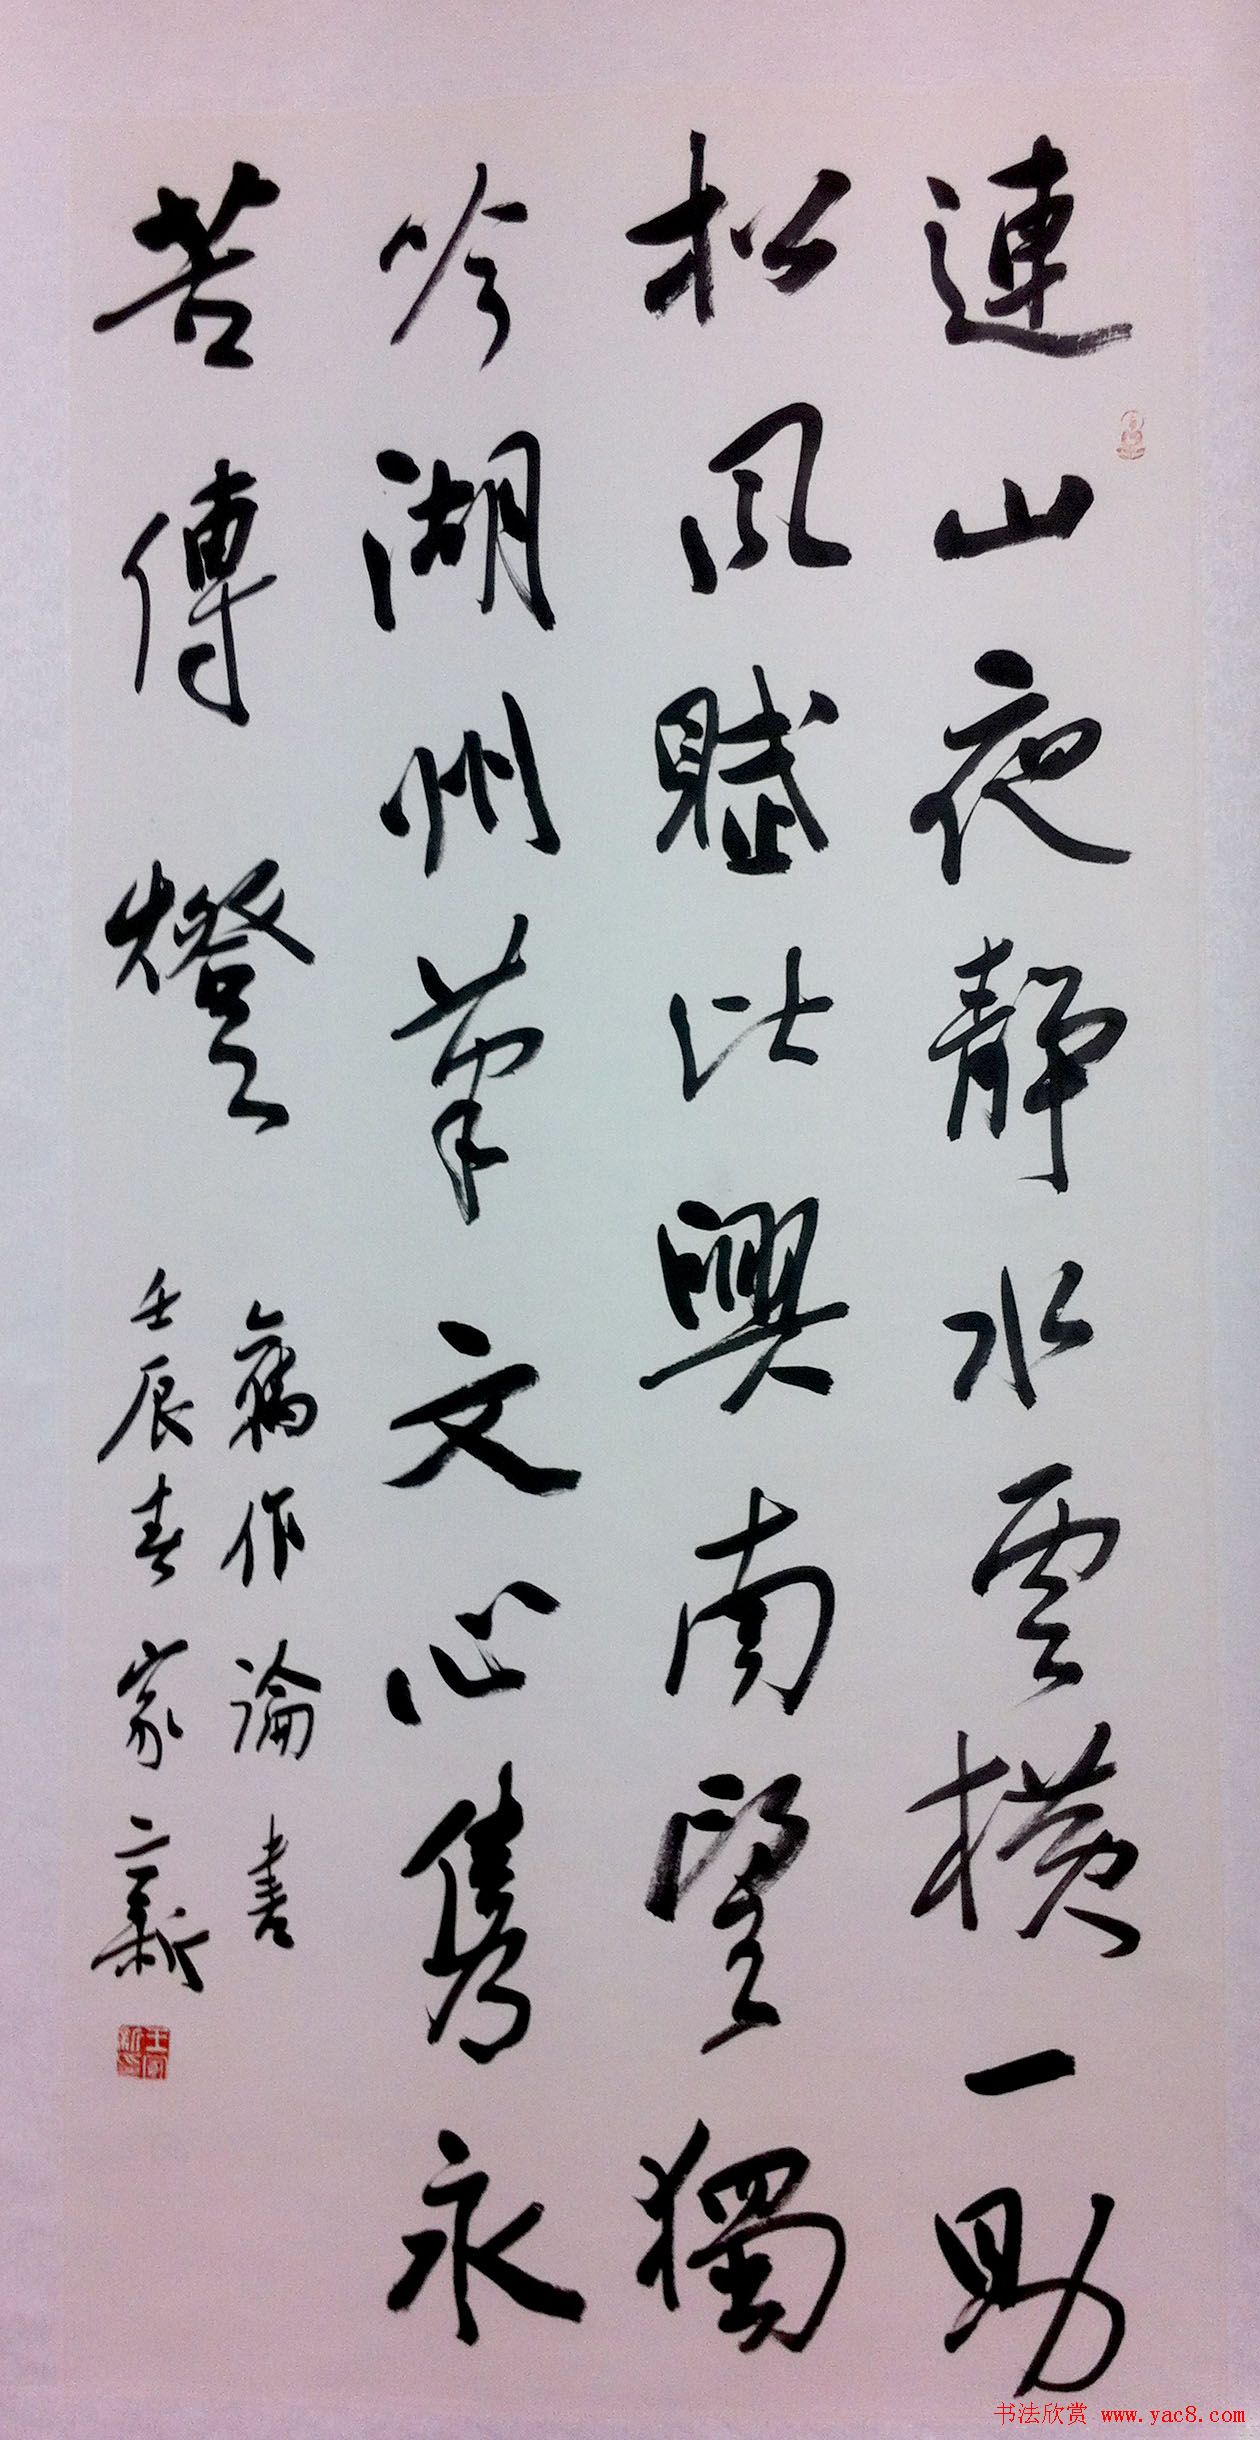 連山夜靜水雲橫一助
松風賦比興南望獨
吟湖州筆文心雋永
苦傳燈
舊作論書
壬辰春家新
王家新印
书法欣赏 www.yac8.com